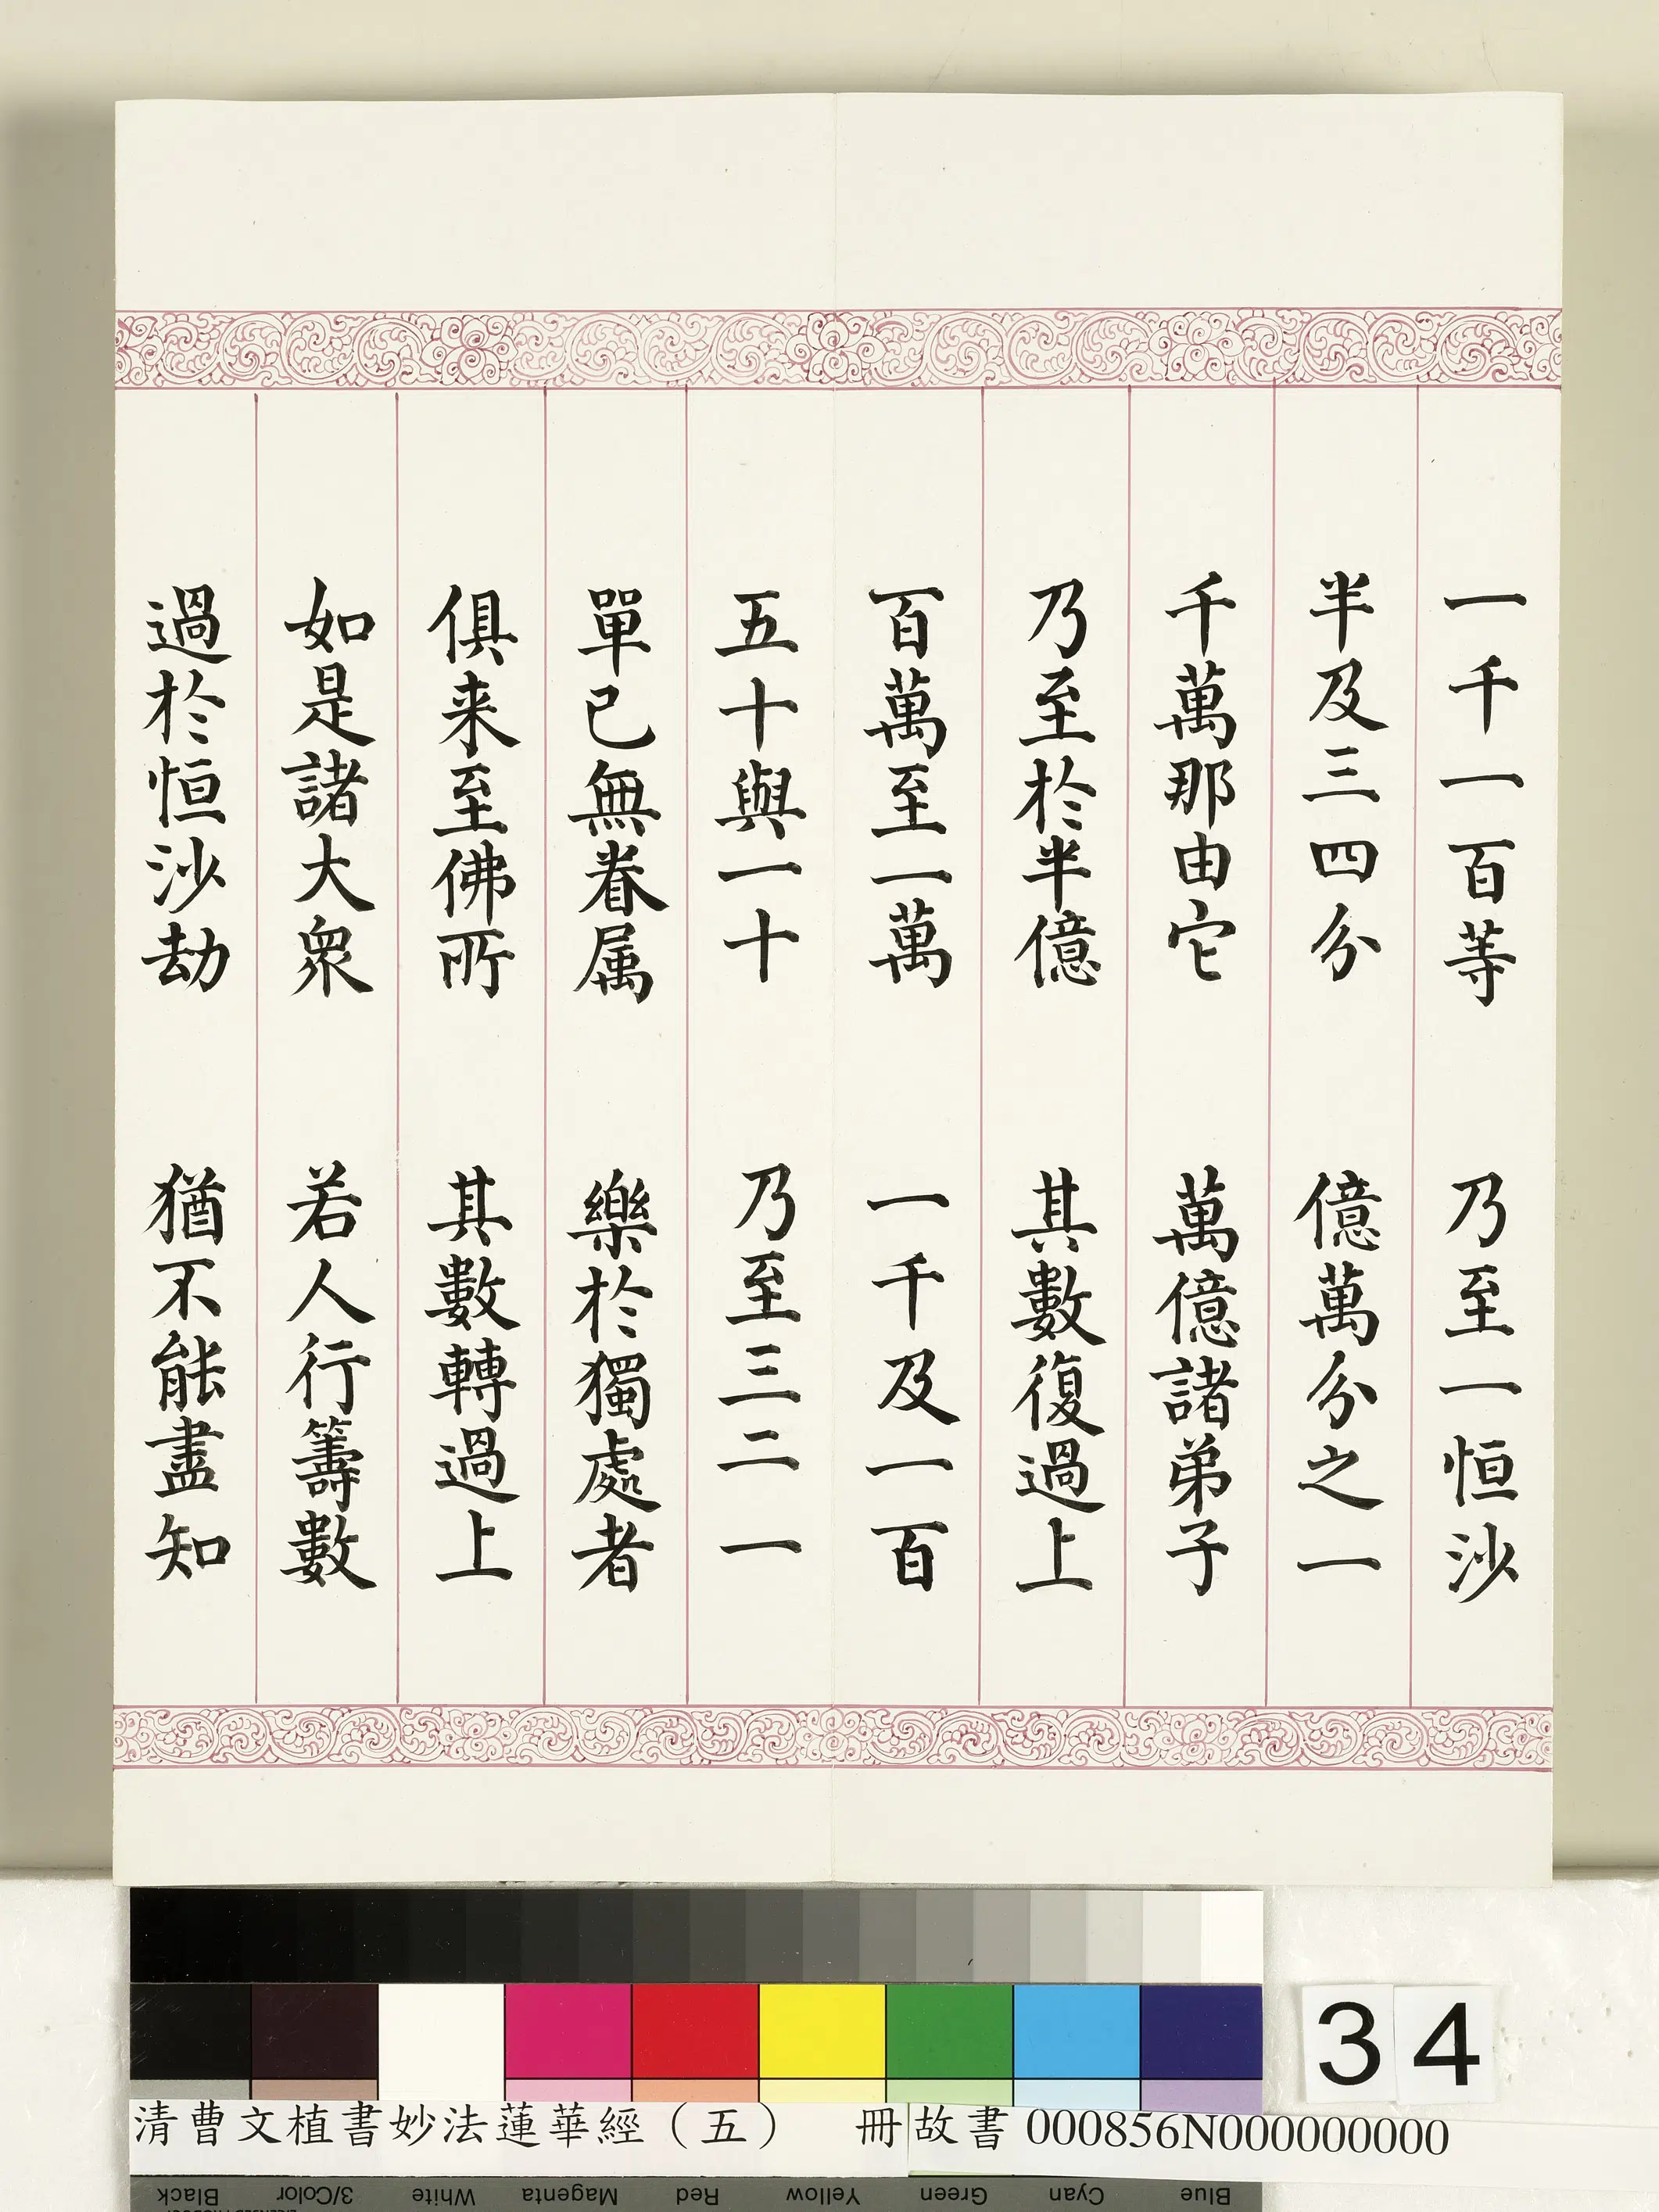 一千一百等　乃至一恒沙
半及三四分　億萬分之一
千萬那由它　萬億諸弟子
乃至於半億　其數復過上
百萬至一萬　一千及一百
五十與一十　乃至三二一
單已無眷属　樂於獨處者
俱来至佛所　其數轉過上
如是諸大衆　若人行籌數
過於恒沙劫　猶不能盡知
34
清曹文植書妙法蓮華經（五）　冊故書000856N000000000
Black 3/Color White Magenta Red Yellow Green Cyan Blue